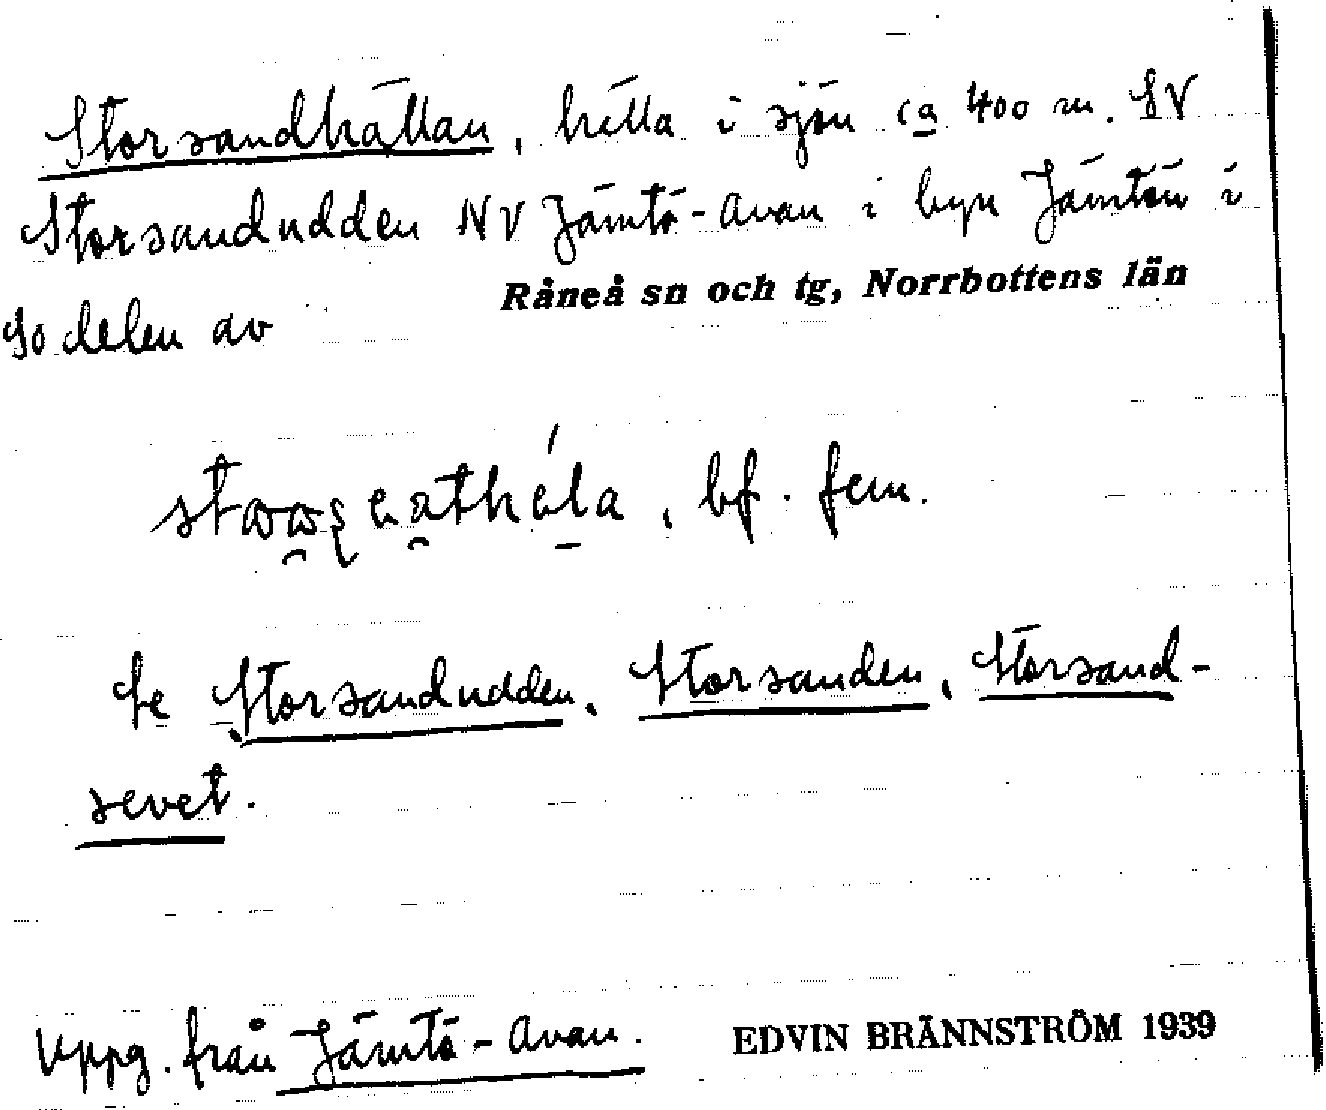 Storsandhällan, hälla i sjön ca 400 m. SV
Storsandudden NV Jämtö-Avan i byn Jämtön i
SO delen av Råneå sn och tg, Norrbottens län
bf. fem.
Se Storsandudden, Storsanden, Storsand-
sevet.
Uppg. från Jämtö-Avan. EDVIN BRÄNNSTRÖM 1939